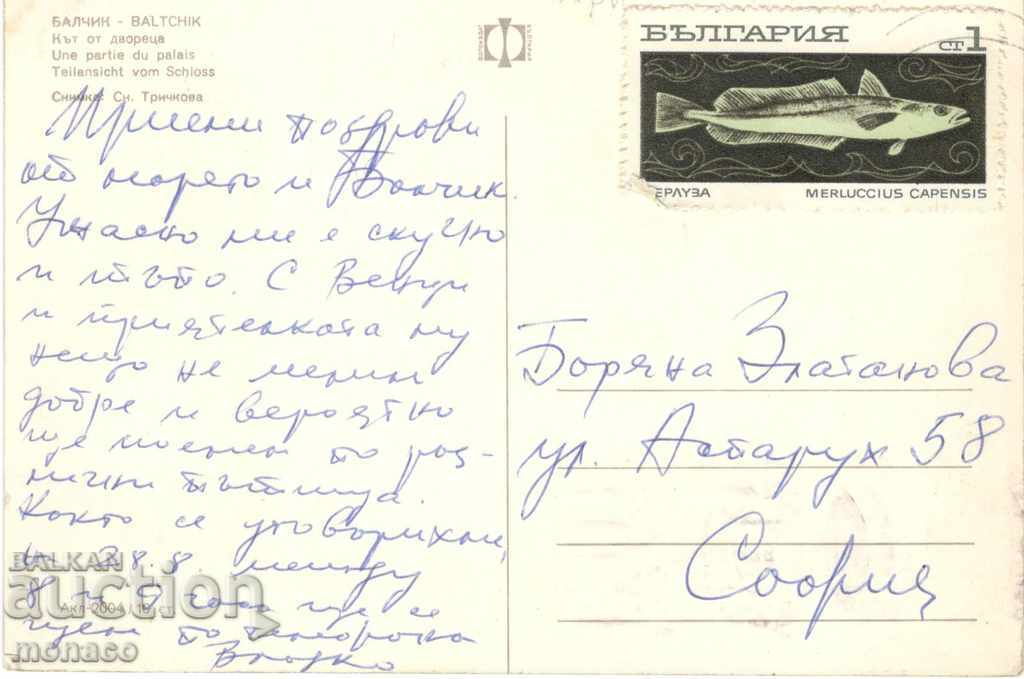 БАЛЧИК - BALTCHIK
Кът от двореца
Une partie du palais
Teilansicht vom Schloss
Снимка: Сн. Тричкова
БЪЛГАРИЯ
СТ 1
ЕРЛУЗА MERLUCCIUS CAPENSIS
Приеми поздрави
от морето и Балчик.
Ужасно ми е скучно
и тъпо. С Венци
и приятелката му
нещо не мелим
добре и вероятно
ще поемем по раз-
лични пътища.
Както се уговорихме,
28.8. между
8 и 9 часа ще се
по
Владко
Боряна Златанова
ул. Аспарух 58
София
BALKAN
auction
Акл-2004/18 ст.
monaco